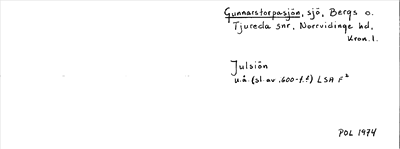 Gunnarstorpasjön, sjö, Bergs o.
Tjureda snr, Norrvidinge hd,
Kron. l.
Julsiön
u.å. (sl. av 1600-t.?) LSA F²
POL 1974